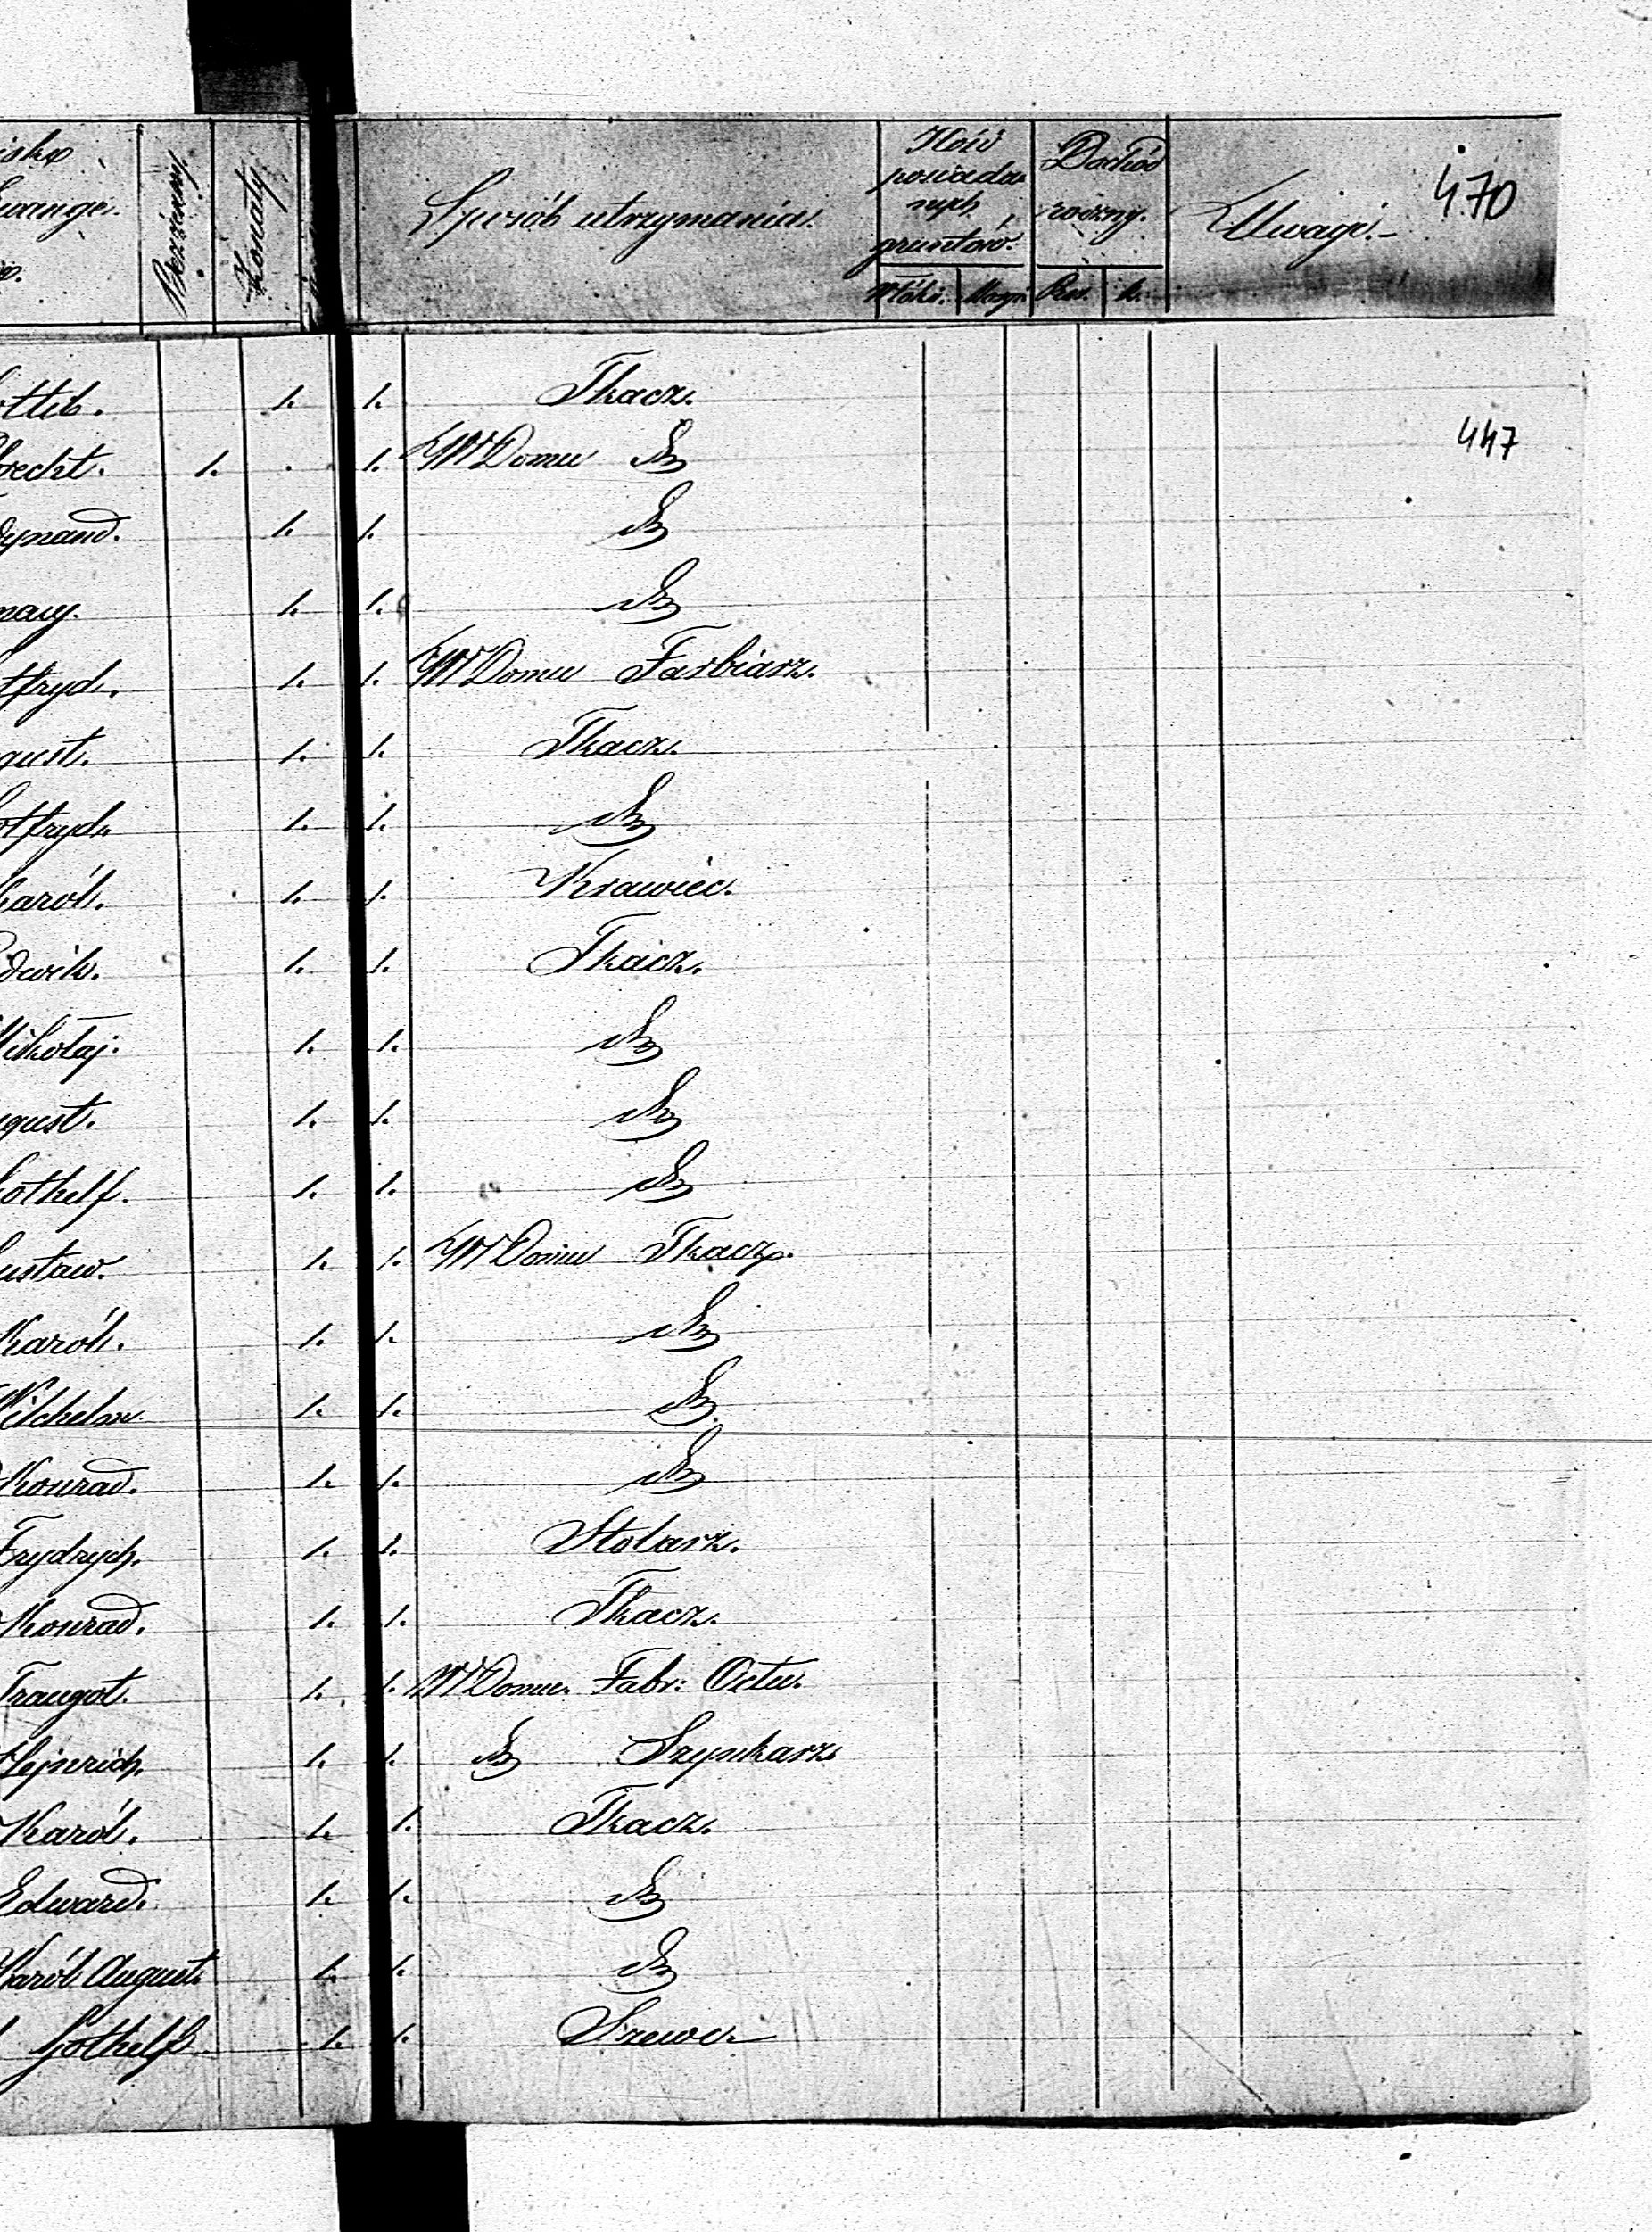 Bezżenny. Żonaty Sposób utrzymania. Ilość posiadanych gruntów. Dochód roczny. Uwagi.- 470
Włók. Morgi Rsr. k.
1. 1. Tkacz.
447
1. . 1. W Domu dto
1. 1. dto
1. 1. dto
1. 1. W Domu Farbiarz.
1. 1. Tkacz.
1. 1. dto
Karól. 1. 1. Krawiec.
1. 1. Tkacz.
Mikołaj. 1. 1. dto
1. 1. dto
Gothelf. 1. 1. dto
1. 1. W Domu Tkacz.
Karól. 1. 1. dto
Wilchelm. 1. 1. dto
Konrad. 1. 1. dto
Frydrych. 1. 1. Stolarz.
Konrad. 1. 1. Tkacz.
Traugot. 1. 1. W Domu. Fabr: Octu.
Hejnrich. 1. 1. dto Szynkarz
Karól. 1. 1. Tkacz.
Edward. 1. 1. dto
Karól August. 1. 1. dto
Gothelf 1. 1. Szewc